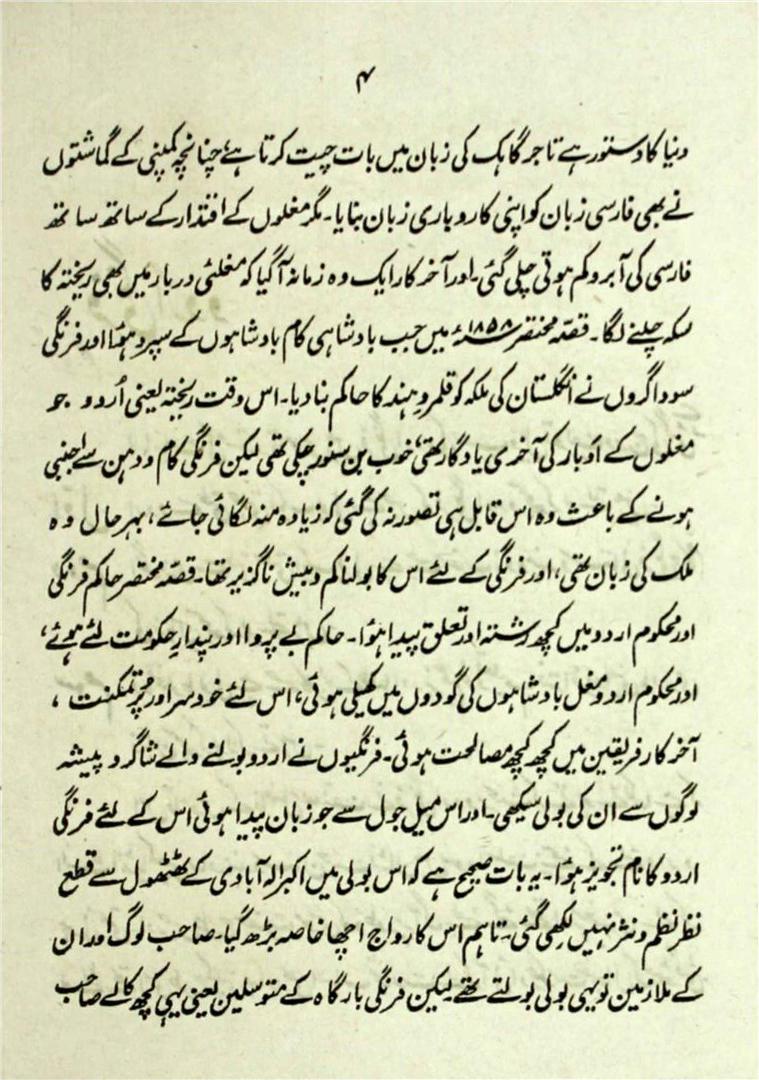 ۴
دنیا کا دستور ہے تاجر گاہک کی زبان میں بات چیت کرتا ہے، چنانچہ کمپنی کے گماشتوں
نے بھی فارسی زبان کو اپنی کاروباری زبان بنایا۔ مگر مغلوں کے اقتدار کے ساتھ ساتھ
فارسی کی آبرو کم ہوتی چلی گئی۔ اور آخر کار ایک وہ زمانہ آ گیا کہ مغلئی دربار میں بھی ریختہ کا
سکہ چلنے لگا۔ قصّہ مختصر ۱۸۵۸ء میں جب بادشاہی کام بادشاہوں کے سپرد ہؤا اور فرنگی
سوداگروں نے انگلستان کی ملکہ کو قلمروِ ہند کا حاکم بنا دیا۔ اس وقت ریختہ یعنی اُردو جو
مغلوں کے اَوبار کی آخری یادگار تھی، خوب بن سنور چکی تھی لیکن فرنگی کام و دہن سے اجنبی
ہونے کے باعث وہ اس قابل ہی تصور نہ کی گئی کہ زیادہ منہ لگائی جائے، بہر حال وہ
ملک کی زبان تھی، اور فرنگی کے لئے اس کا بولنا کم و بیش ناگزیر تھا۔ قصّہ مختصر حاکم فرنگی
اور محکوم اردو میں کچھ رشتہ اور تعلق پیدا ہؤا۔ حاکم بے پروا اور پندارِ حکومت لئے ہوئے،
اور محکوم اردو مغل بادشاہوں کی گودوں میں کھیلی ہوئی، اس لئے خودسر اور پُر تمکنت ،
آخر کار فریقین میں کچھ کچھ مصالحت ہوئی۔ فرنگیوں نے اردو بولنے والے شاگرد پیشہ
لوگوں سے ان کی بولی سیکھی۔ اور اس میل جول سے جو زبان پیدا ہوئی اس کے لئے فرنگی
اردو کا نام تجویز ہؤا۔ یہ بات صحیح ہے کہ اس بولی میں اکبر الہ آبادی کے ٹھٹھول سے قطع
نظر نظم و نثر نہیں لکھی گئی۔ تاہم اس کا رواج اچھا خاصہ بڑھ گیا۔ صاحب لوگ اور ان
کے ملازمین تو یہی بولی بولتے تھے۔ لیکن فرنگی بارگاہ کے متوسلین یعنی یہی کچھ کالے صاحب